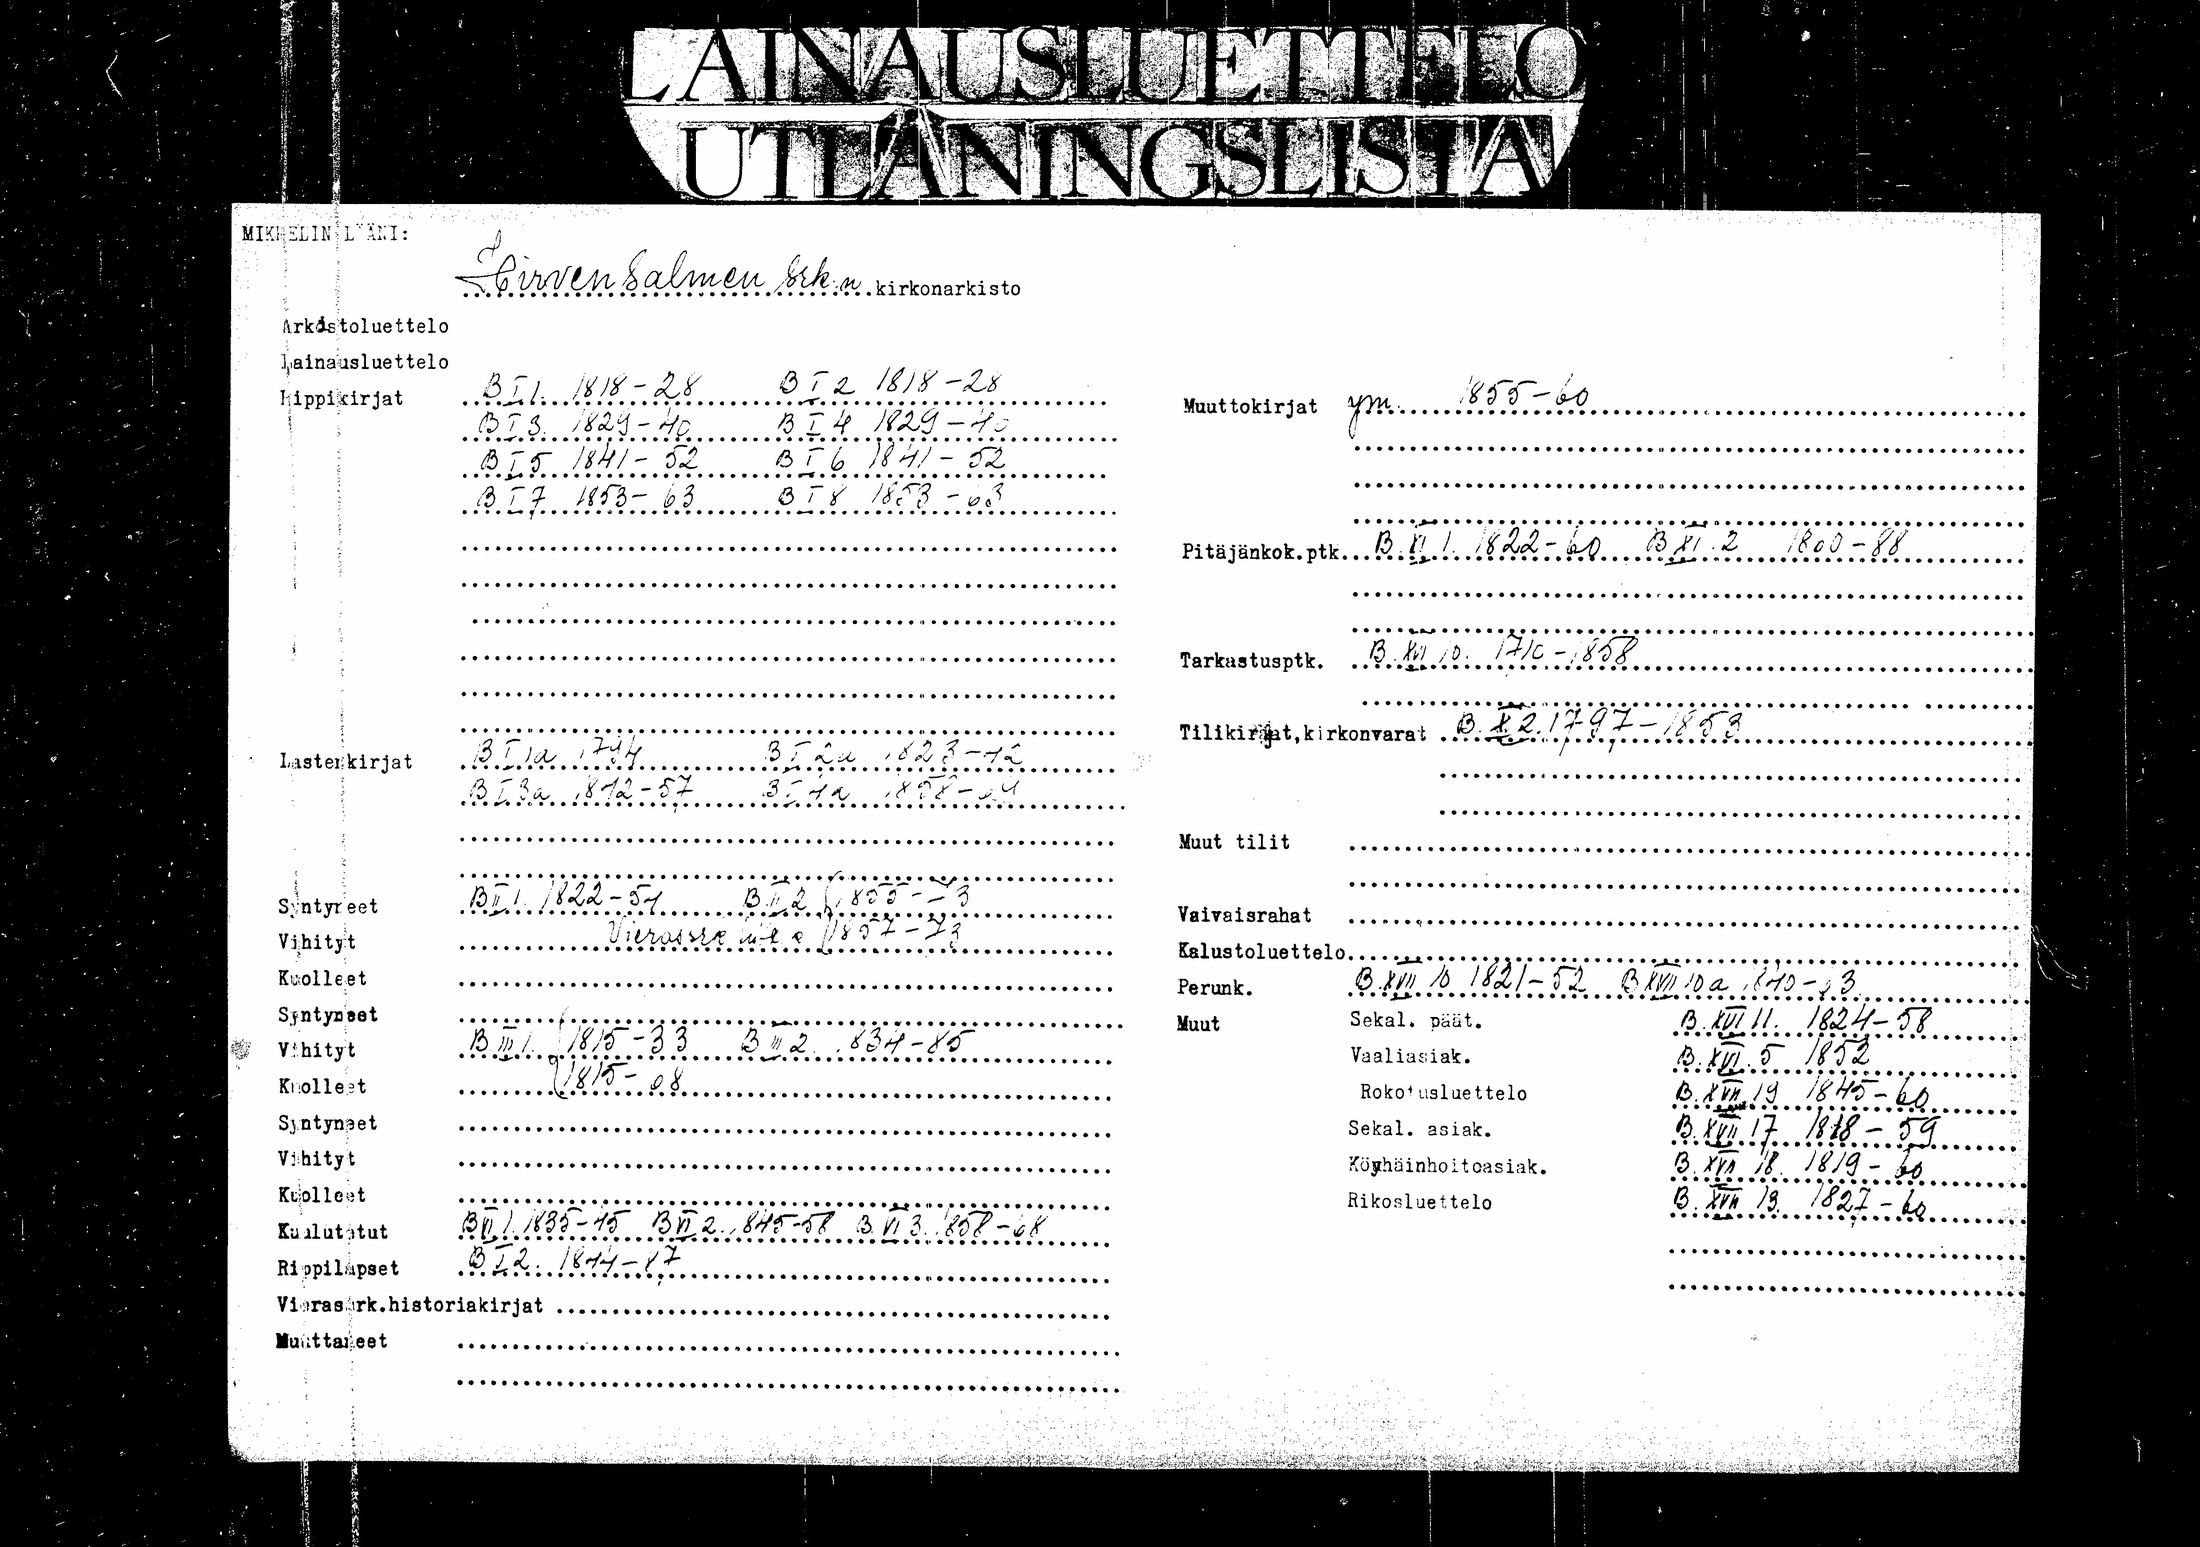 LAINAUSLUETTELO
UTLÅNINGSLISTA
MIKKELIN LÄÄNI:
Hirvensalmen srk:n kirkonarkisto
Arkistoluettelo
Lainausluettelo
Rippikirjat B I 1. 1818-28 B I 2 1818-28
B I 3. 1829-40 B I 4 1829-40
B I 5 1841-52 B I 6 1841-52
B I 7 1853-63 B I 8 1853-63
Lastenkirjat B I 1a 1794 B I 2a 1823-42
B I 3a 1842-57 B I 4a 1858-64
Syntyneet B II 1. 1822-54 B II 2 1855-73
Vihityt 1857-73
Kuolleet
Syntyneet
Vihityt B III 1. 1815-33 B III 2. 1834-85
Kuolleet 1815-
Syntyneet
Vihityt
Kuolleet
Kuulutetut B VI 1. 1835-45 B VI 2. 1845-58 B VI 3. 1858-68
Rippilapset B I 2. 1844-87
Vierassrk.historiakirjat
Muuttaneet
Muuttokirjat ym. 1855-60
Pitäjänkok.ptk. B. XI 1. 1822-60 B XI. 2 1800-88
Tarkastusptk. B. XVI 10. 1710-1858
Tilikirjat,kirkonvarat B. X 2. 1797-1853
Muut tilit
Vaivaisrahat
Kalustoluettelo
Perunk. B. XVII 10 1821-52 B XVII 10a 1840-
Muut Sekal. päät. B. XVI 11. 1824-58
Vaaliasiak. B. XVI. 5 1852
Rokotusluettelo B. XVII 19 1845-60
Sekal. asiak. B. XVII 17 1818-59
Köyhäinhoitoasiak. B. XVII 18. 1819-60
Rikosluettelo B. XVII 13. 1827-60